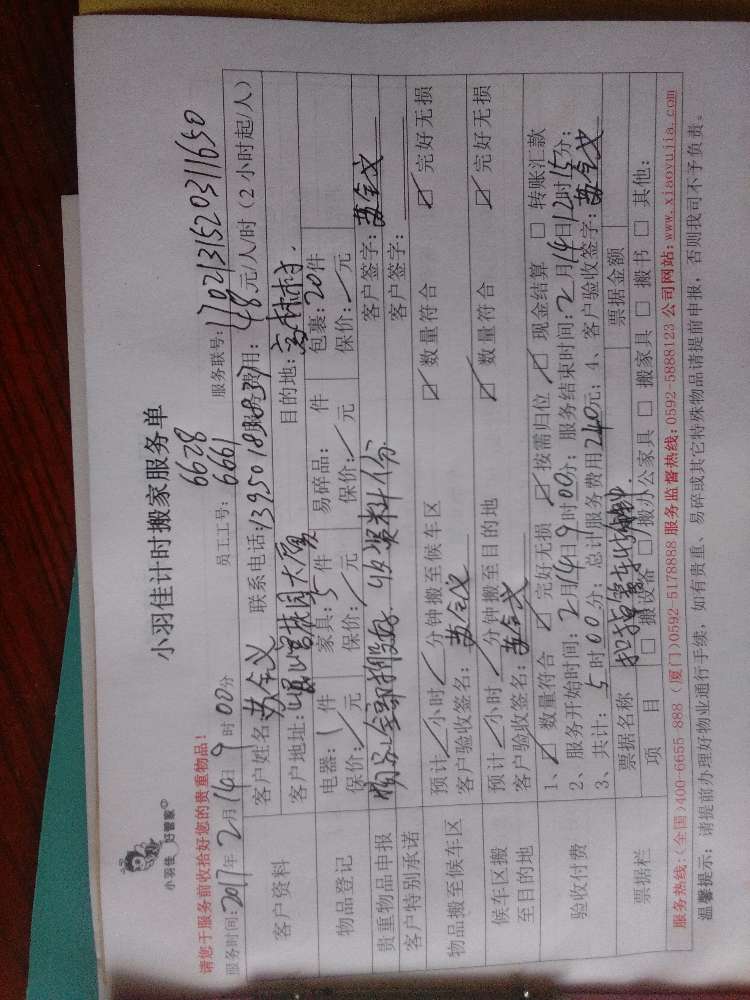 小羽佳 好管家
小羽佳计时搬家服务单
请您于服务前收拾好您的贵重物品!
6628
服务时间:2017年2月14日9时00分 员工工号:6661 服务联号:170213152031 1650
客户资料 客户姓名:苏全义 联系电话:13950188837 服务费用:48元/人/时(2小时起/人)
客户地址: 大厦 目的地:高林村.
物品登记 电器:1件 家具:5件 易碎品: 件 包裹:20件
保价:/元 保价:/元 保价:/元 保价:/元
贵重物品申报 物品全部
客户签字:苏全义
客户特别承诺 客户签字:
物品搬至候车区 预计/小时/分钟搬至候车区 ☑ 数量符合 ☑ 完好无损
客户验收签名:苏全义
候车区搬至目的地 预计/小时/分钟搬至目的地 ☑ 数量符合 ☑ 完好无损
客户验收签名:苏全义
验收付费 1、☑ 数量符合 ☑ 完好无损 ☑ 按需归位 ☑ 现金结算 □ 转账汇款
2、服务开始时间:2月14日9时00分;服务结束时间:2月14日12时15分;
3、共计:5时00分;总计服务费用240元;4、客户验收签字:苏全义
票据栏 票据名称 票据金额
项目 □ 搬设备 □ 搬办公家具 □ 搬家具 □ 搬书 □ 其他:
服务热线:(全国)400-6655-888 (厦门)0592-5178888 服务监督热线:0592-5888123 公司网站:www.xiaoyujia.com
温馨提示:请提前办理好物业通行手续,如有贵重、易碎或其它特殊物品请提前申报,否则我司不予负责。